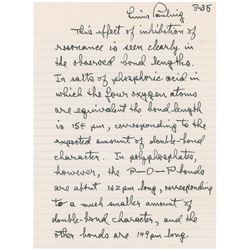 Linus Pauling
8-35
This effect of inhibition of
resonance is seen clearly in
the observed bond lengths.
In salts of phosphoric acid in
which the four oxygen atoms
are equivalent the bond length
is 154 pm, corresponding to the
expected amount of double-bond
character. In polyphosphates,
however, the P—O—P bonds
are about 162 pm long, corresponding
to a much smaller amount of
double-bond character, and the
other bonds are 149 pm long.